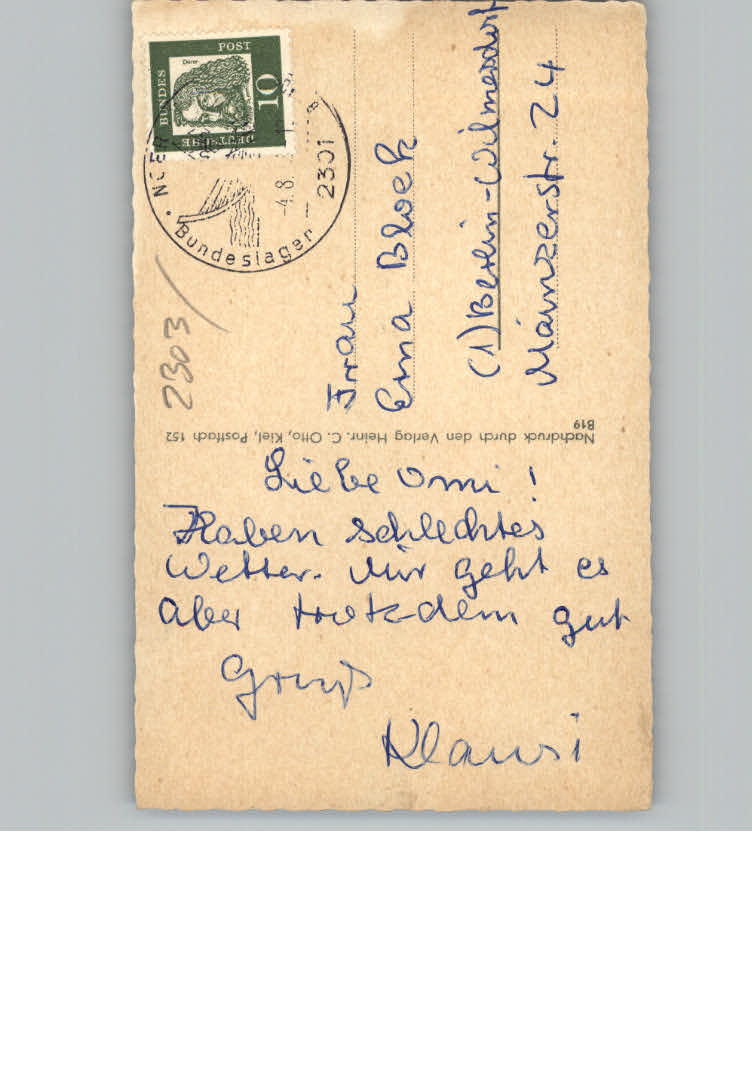 Liebe Omi!
Haben schlechtes
Wetter. Mir geht es
aber trotzdem gut
Gruß
Klausi
Frau
Erna Block
(1) Berlin-Wilmersdorf
Mainzerstr. 24
Nachdruck durch den Verlag Heinr. C. Otto, Kiel, Postfach 152
B19
2303
DEUTSCHE BUNDESPOST
10
Dürer
NOER
2301
-4.8.
Bundeslager